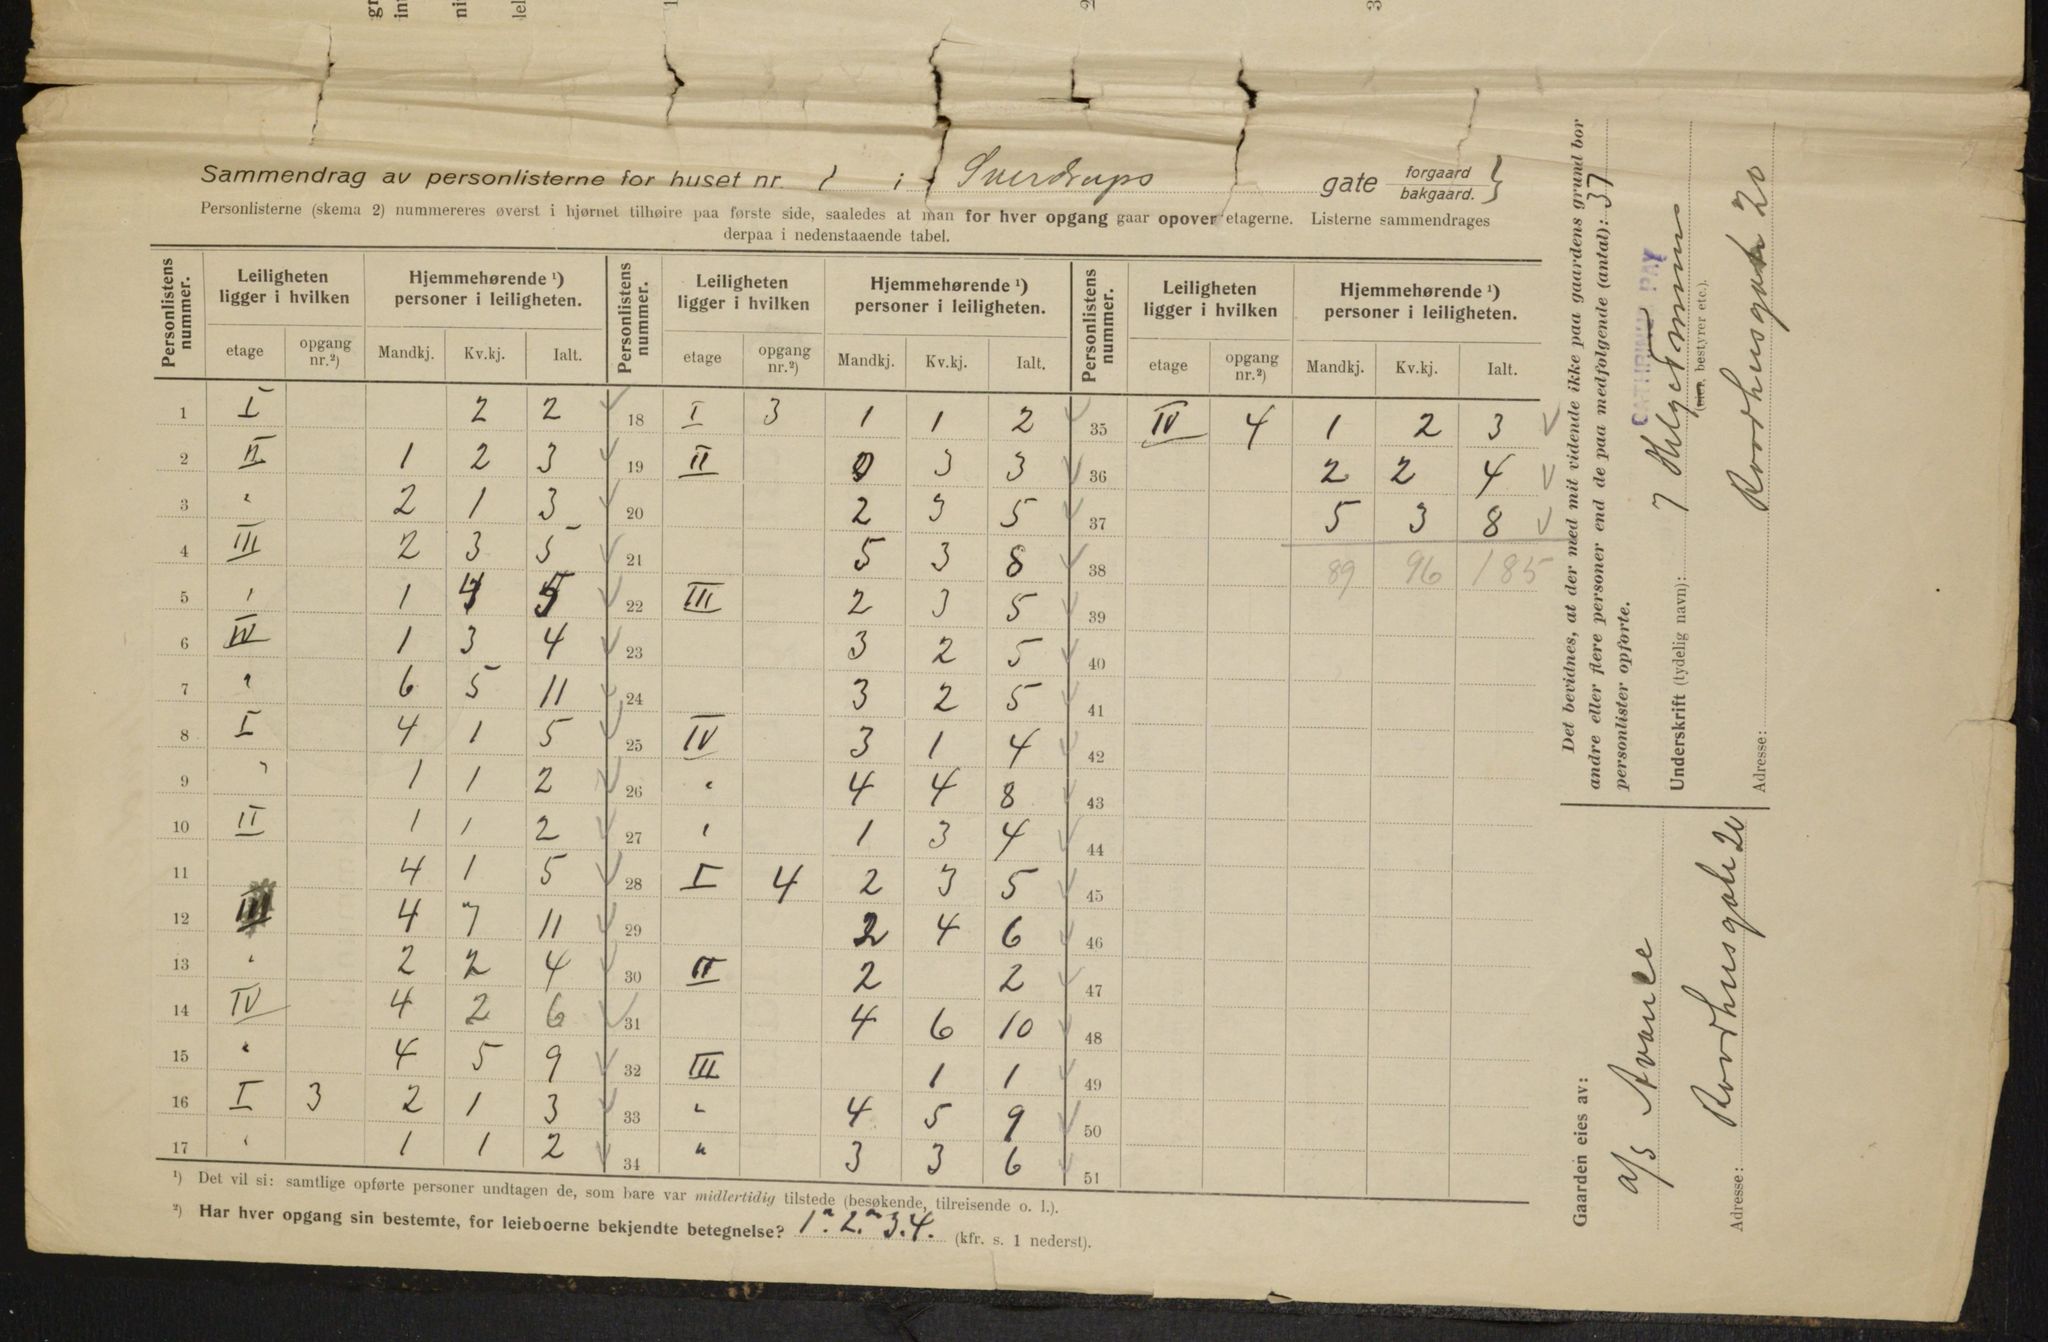 Sammendrag av personlisterne for huset nr. 1 i Sverdrups gate forgaard bakgaard.}
Personlisterne (skema 2) nummereres øverst i hjørnet tilhøire paa første side, saaledes at man for hver opgang gaar opover etagerne. Listerne sammendrages
derpaa i nedenstaaende tabel.
Personlistens nummer. Leiligheten ligger i hvilken Hjemmehørende ¹) personer i leiligheten. Personlistens nummer. Leiligheten ligger i hvilken Hjemmehørende ¹) personer i leiligheten. Personlistens nummer. Leiligheten ligger i hvilken Hjemmehørende ¹) personer i leiligheten.
etage opgang nr.²) Mandkj. Kv.kj. Ialt. etage opgang nr.²) Mandkj. Kv.kj. Ialt. etage opgang nr.²) Mandkj. Kv.kj. Ialt.
1 I 2 2 ✓ 18 I 3 1 1 2 ✓ 35 IV 4 1 2 3 ✓
2 II 1 2 3 ✓ 19 II 0 3 3 ✓ 36 2 2 4 ✓
3 " 2 1 3 ✓ 20 2 3 5 ✓ 37 5 3 8 ✓
4 III 2 3 5 ✓ 21 5 3 8 ✓ 38 89 96 185
5 " 1 4 5 ✓ 22 III 2 3 5 ✓ 39
6 IV 1 3 4 ✓ 23 3 2 5 ✓ 40
7 " 6 5 11 ✓ 24 3 2 5 ✓ 41
8 I 4 1 5 ✓ 25 IV 3 1 4 ✓ 42
9 " 1 1 2 ✓ 26 " 4 4 8 ✓ 43
10 II 1 1 2 ✓ 27 " 1 3 4 ✓ 44
11 4 1 5 ✓ 28 I 4 2 3 5 ✓ 45
12 III 4 7 11 ✓ 29 2 4 6 ✓ 46
13 " 2 2 4 ✓ 30 II 2 2 ✓ 47
14 IV 4 2 6 ✓ 31 4 6 10 ✓ 48
15 " 4 5 9 ✓ 32 III 1 1 ✓ 49
16 I 3 2 1 3 ✓ 33 " 4 5 9 ✓ 50
17 " 1 1 2 ✓ 34 " 3 3 6 ✓ 51
¹) Det vil si: samtlige opførte personer undtagen de, som bare var midlertidig tilstede (besøkende, tilreisende o. l.).
²) Har hver opgang sin bestemte, for leieboerne bekjendte betegnelse? 1". 2." 3. 4. (kfr. s. 1 nederst).
Det bevidnes, at der med mit vidende ikke paa gaardens grund bor
andre eller flere personer end de paa medfølgende (antal): 37
personlister opførte.
Underskrift (tydelig navn):
(eier, bestyrer etc.).
Adresse: Raadhusgaten 20
Gaarden eies av:
A/S
Adresse: Raadhusgaten 20